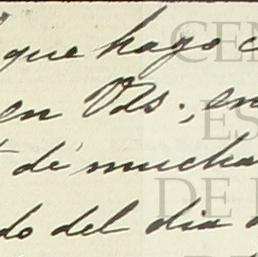 que hago
en Vds., en
de mucha
do del dia
CEN
ES
DE